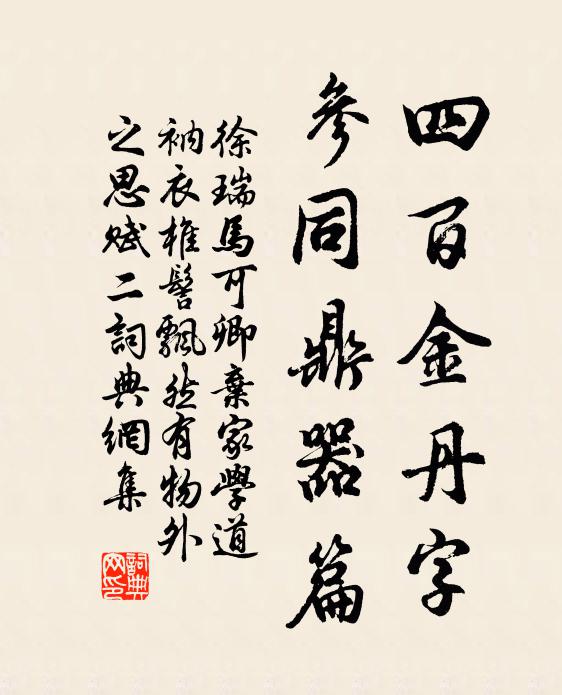 四百金丹字
參同鼎器篇
徐瑞馬可卿棄家學道
衲衣椎髻飄然有物外
之思賦二詞典網集
詞典
网印